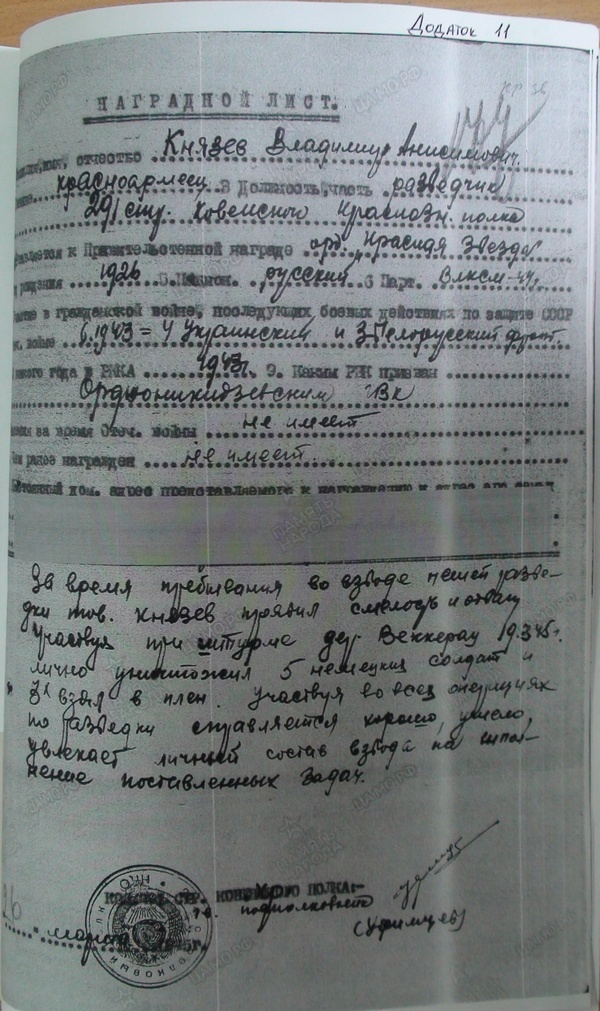 Додаток 11
НАГРАДНОЙ ЛИСТ.
отчество Князев Владимир Анисимович.
красноармеец В Должность, часть разведчик
291 стр. Ковенского Краснозн. полка
к Правительственной награде орд. "Красная Звезда"
рждения 1926 5. Национ. русский 6 Парт. ВЛКСМ-44г.
в гражданской войне, последующих боевых действиях по защите СССР
войне 6.1943 = 4 Украинский и 3 Белорусский фронт.
года в РККА 1943г. 9. Каким РВК призван
Орджоникидзевским РВК
за время Отеч. войны не имеет
ранее награжден не имеет.
дом. адрес представляемого к награждению и адрес его семьи
За время пребывания во взводе пешей разве-
дки тов. Князев проявил смелость и отвагу
Участвуя при штурме дер. Веккерау 19.3.45г.
лично уничтожил 5 немецких солдат и
3х взял в плен. Участвуя во всех операциях
по разведки справляется хорошо, умело,
увлекает личный состав взвода на выпол-
нение поставленных задач.
СТР. ПОЛКА:-
подполковник
(Уфимцев)
26 марта 1945г.